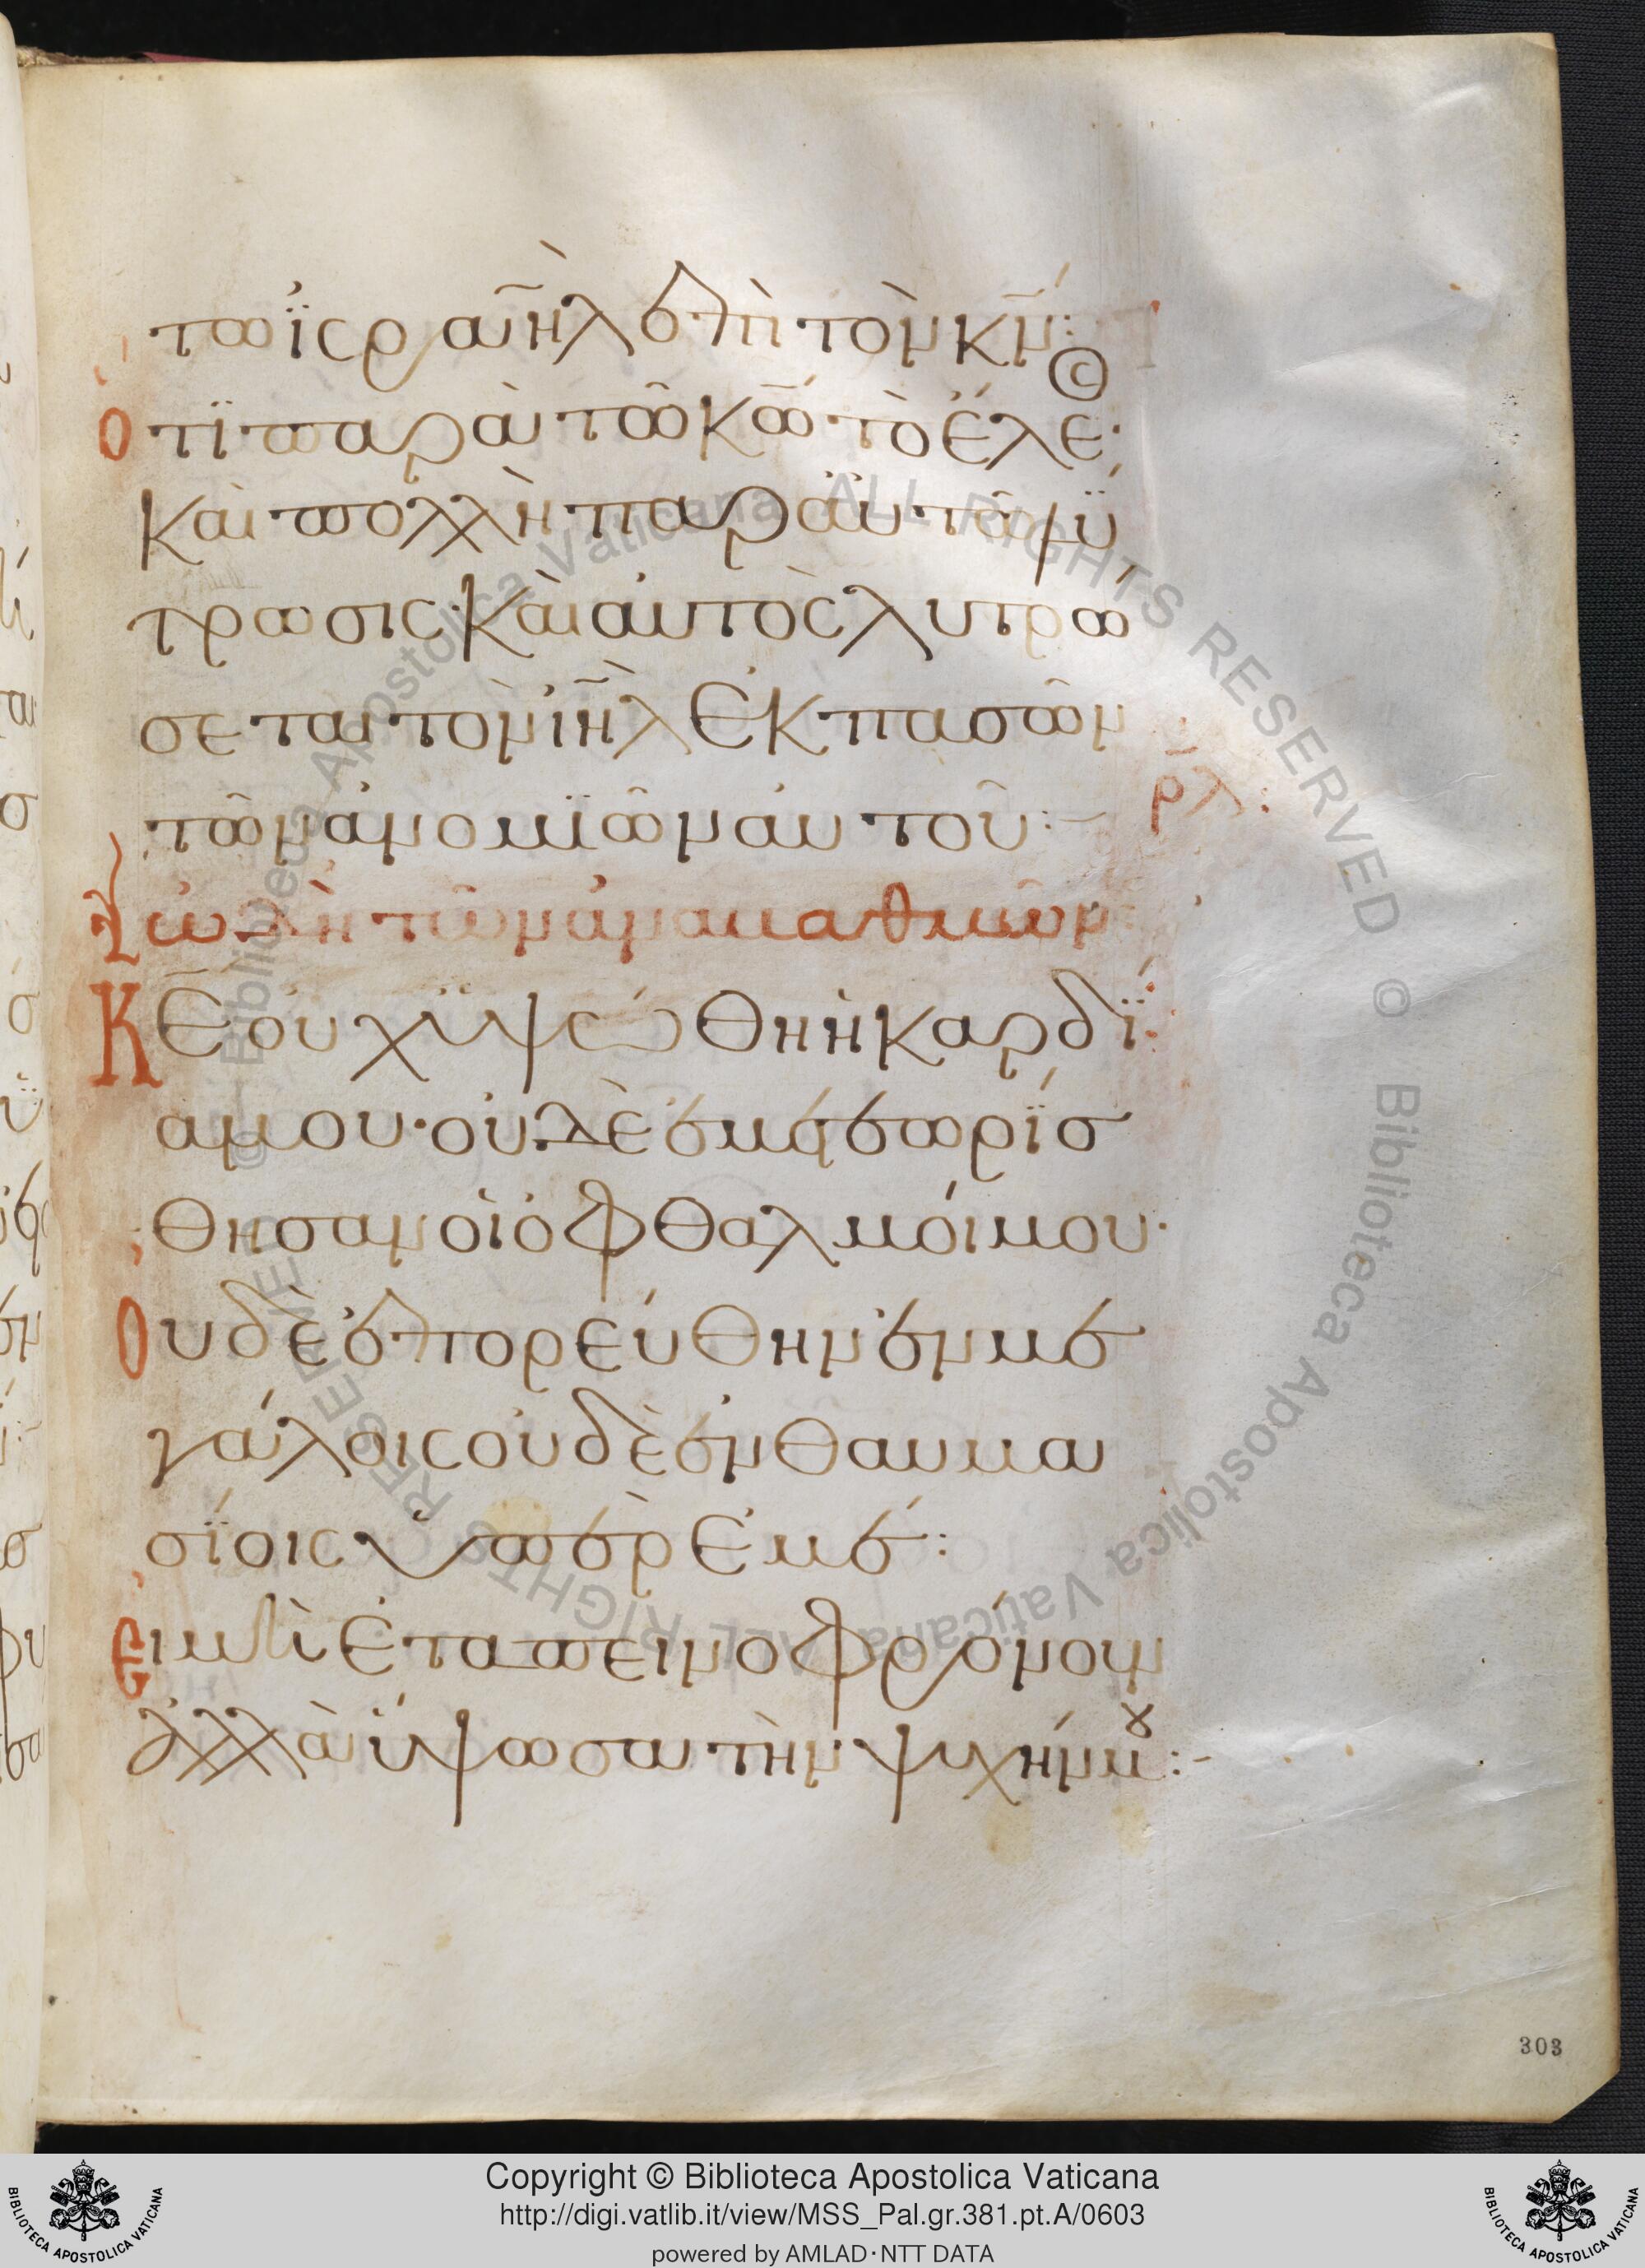 τω ϊσραὴ̃λ ἐπὶ τὸν κ̅ν̅:
ὅτϊ παρὰ τῶ κ̅ω̅ τὸ ἔλε·
καὶ πολλὴ παρ' αὐτῶ λύ
τρωσις· καὶ αὐτὸς λυτρω
σεται τὸν ι̅η̅λ̅ ἐκ πασῶν
τῶν ἀνομϊῶν αὐτοῦ:–
ρ̅λ̅:
ὠδὴ τῶν ἀναβαθμῶν:
Κ̅ε̅ οὐχ ὑψώθη ἡ καρδί
α μου· οὐδὲ ἐμετεωρίσ
θησαν οἱ ὀφθαλμοί μου·
Ουδὲ ἐπορεύθην ἐν με
γάλοις οὐδὲ ἐν θαυμα
σίοις ὑπὲρ ἐμέ:
Ει μὴ ἐταπεινοφρόνουν
ἀλλὰ ὕψωσα τὴν ψυχήν μου:–
303
© Biblioteca Apostolica Vaticana ALL RIGHTS RESERVED © Biblioteca Apostolica Vaticana ALL RIGHTS RESERVED
Copyright © Biblioteca Apostolica Vaticana
http://digi.vatlib.it/view/MSS_Pal.gr.381.pt.A/0603
powered by AMLAD·NTT DATA
BIBLIOTECA APOSTOLICA VATICANA
BIBLIOTECA APOSTOLICA VATICANA